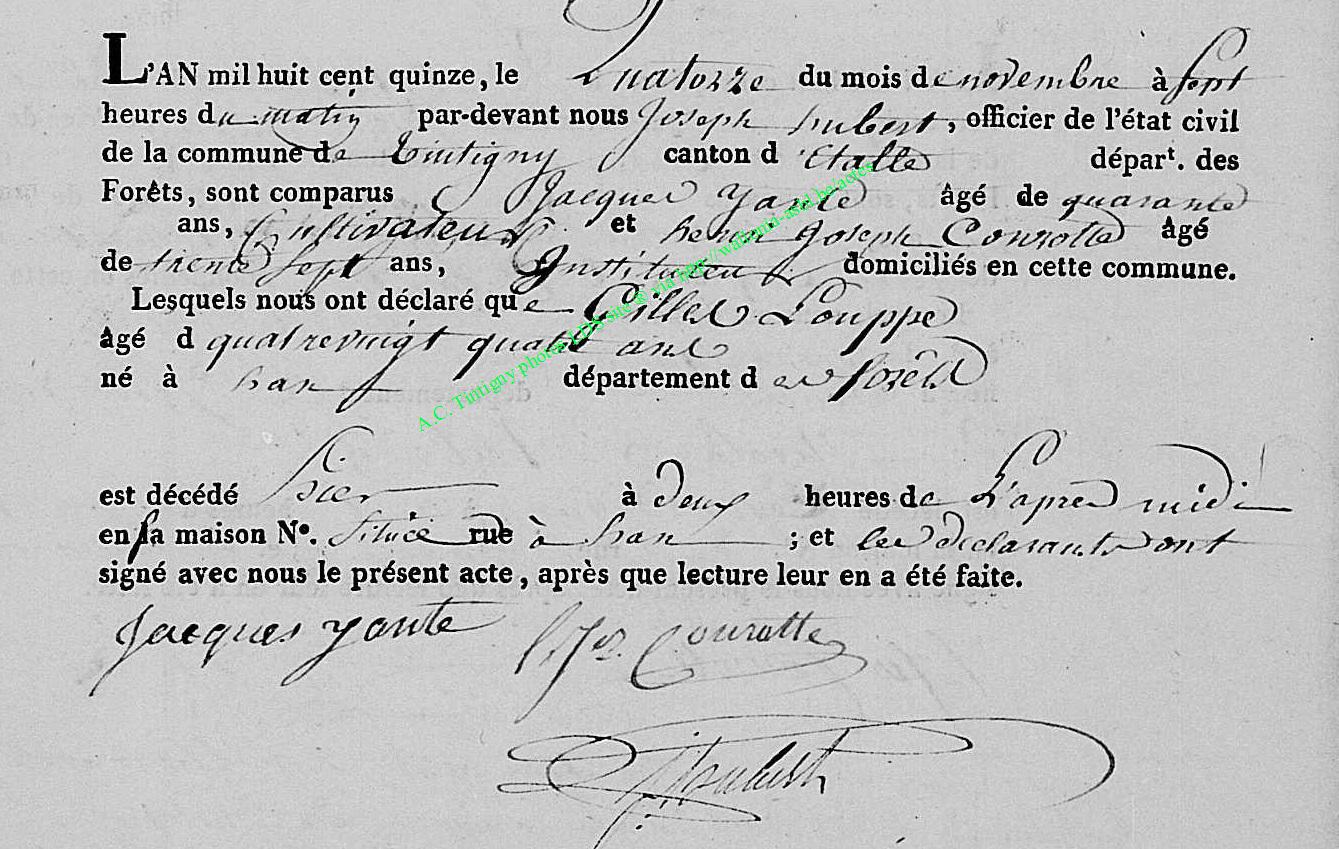 L'AN mil huit cent quinze, le quatorze du mois de novembre à sept
heures du matin par-devant nous Joseph hubert, officier de l'état civil
de la commune de Tintigny canton d'Etalle départ. des
Forêts, sont comparus Jacques Yante âgé de quarante
ans, Cultivateur et henri Joseph Courotte âgé
de trente sept ans, Instituteur domiciliés en cette commune.
Lesquels nous ont déclaré que Gilles Louppe
âgé d quatrevingt quatre ans
né à han département des forêts
est décédé hier à deux heures de L'apres midi
en sa maison N°. située rue à han ; et les declarants ont
signé avec nous le présent acte, après que lecture leur en a été faite.
Jacques yante
hJos. Courotte
A.C. Tintigny photos LDS site @ via http://wallonia-asbl.be/actes